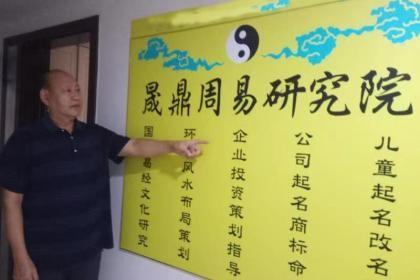 晟鼎周易研究院
国易经文化研究
环风水布局策划
企业投资策划指导
公司起名商标命
儿童起名改名